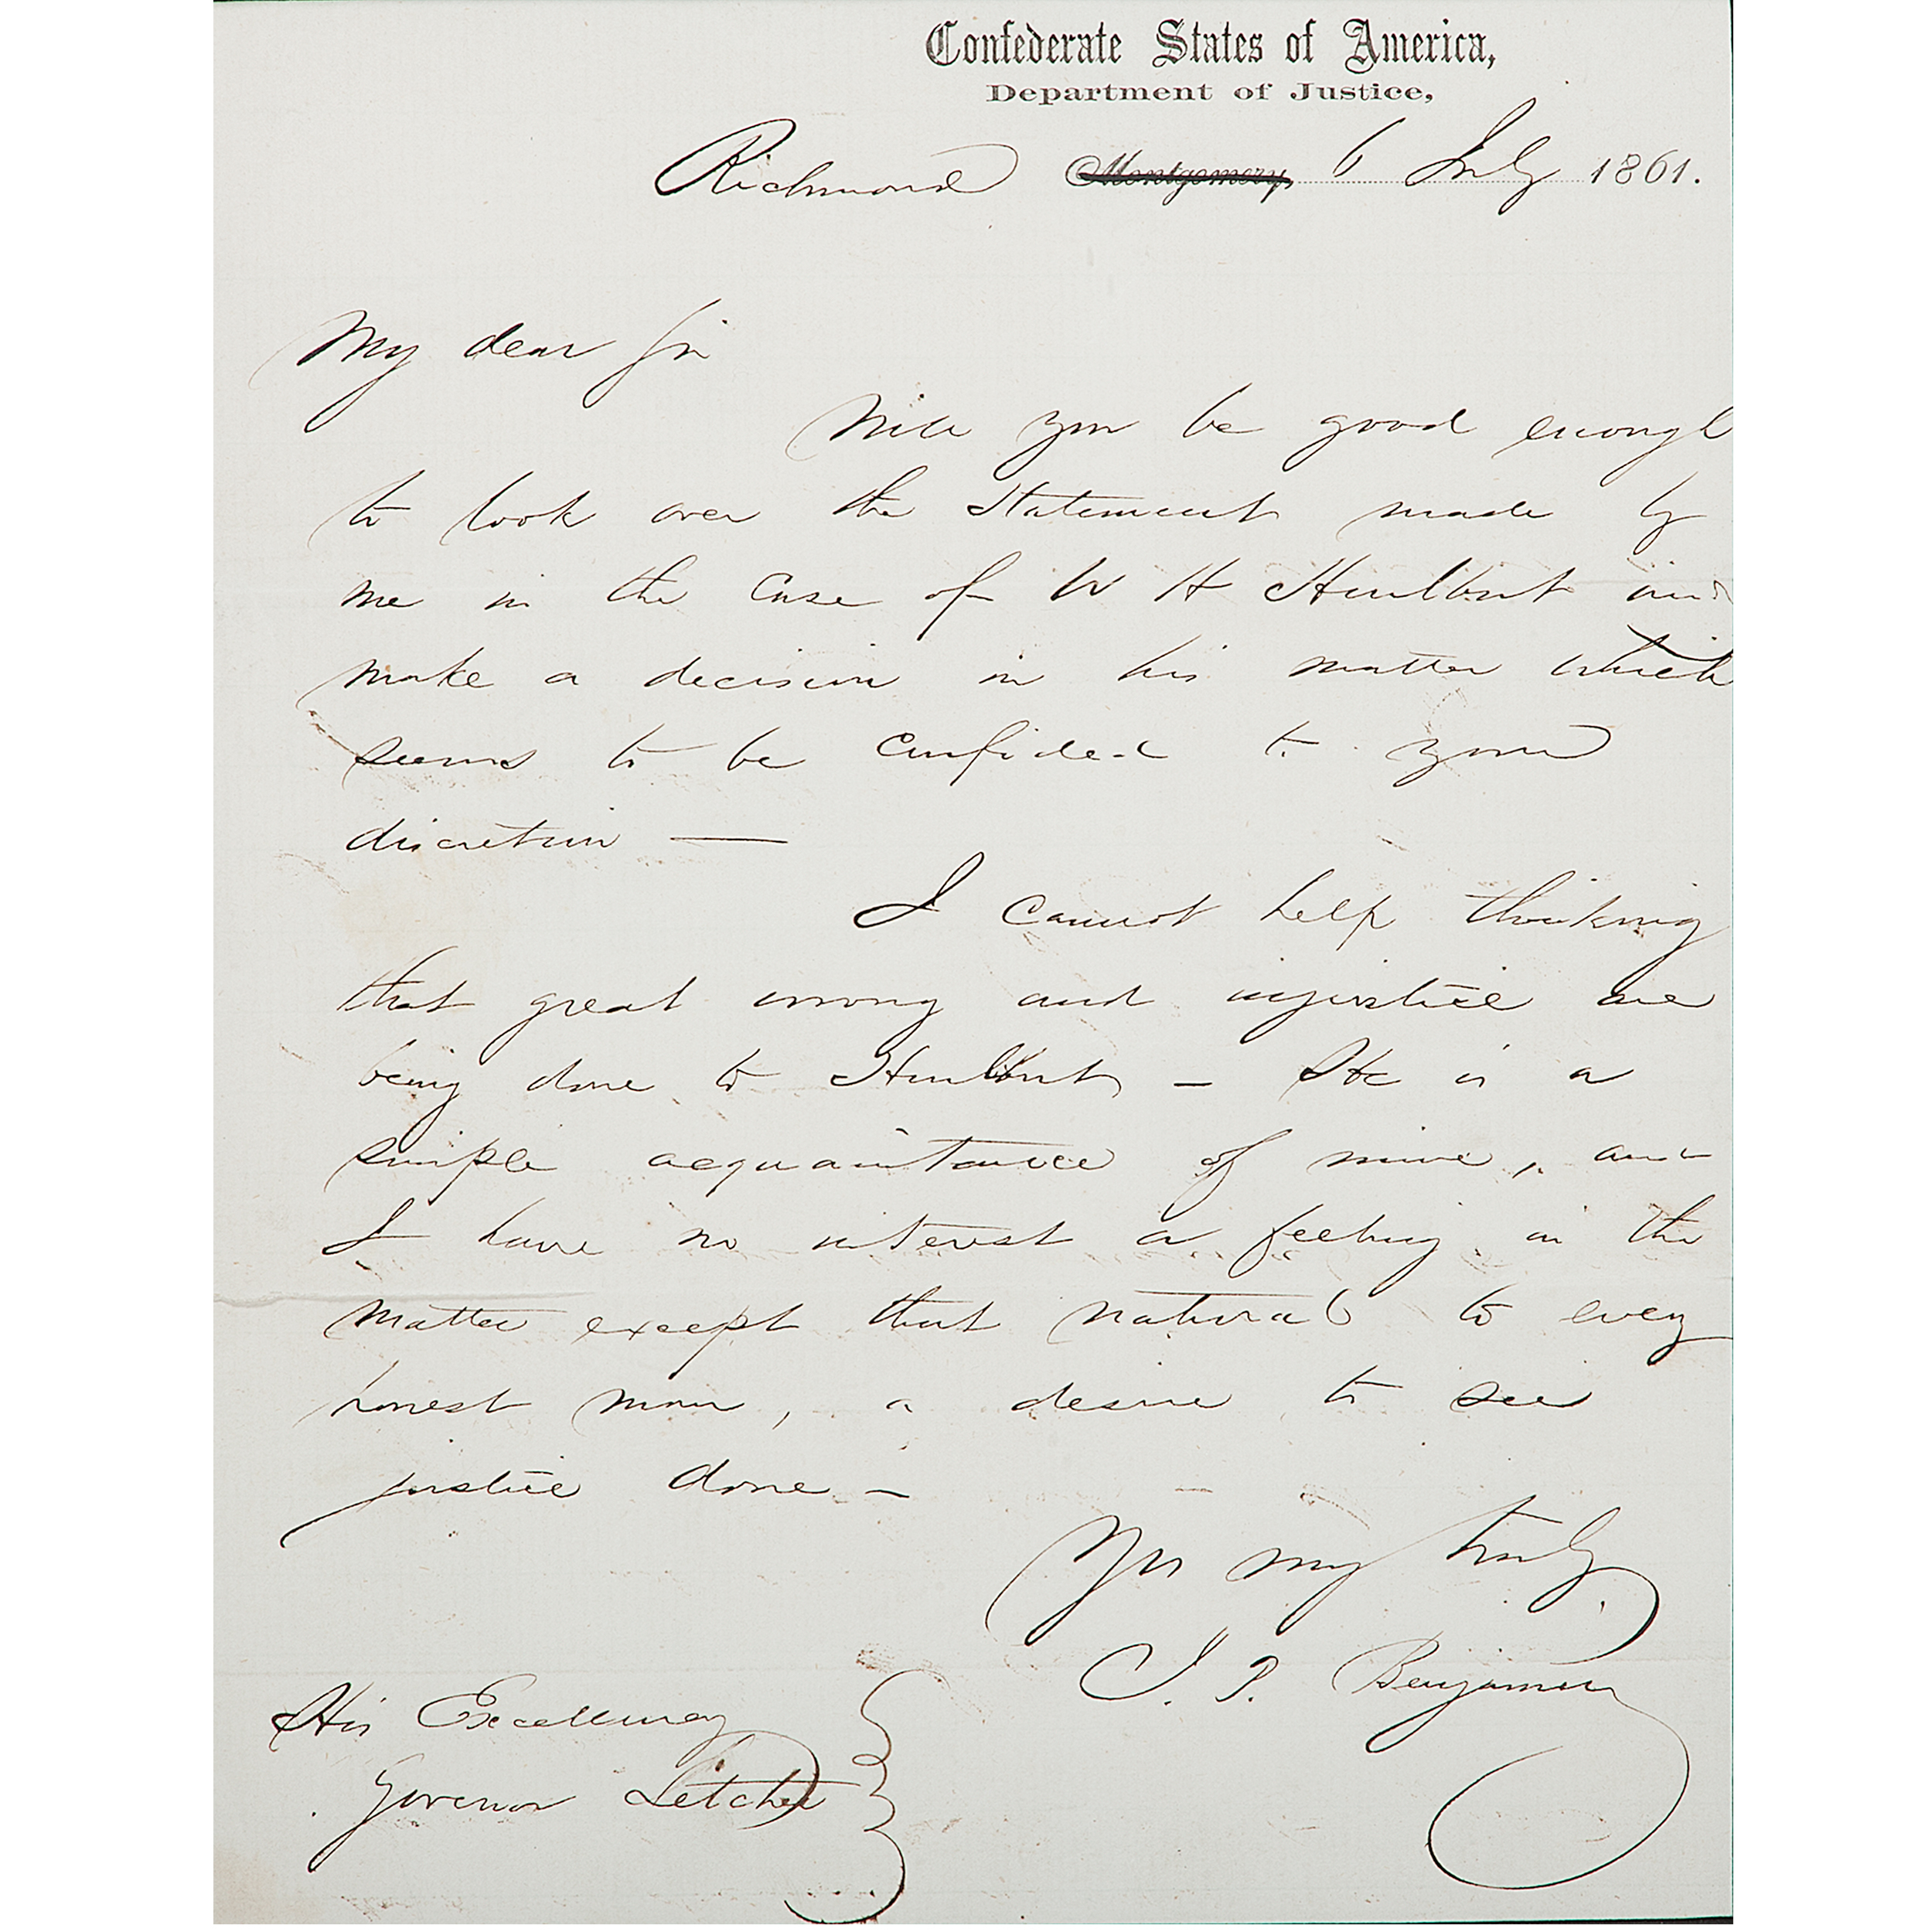 Confederate States of America,
Department of Justice,
Richmond Montgomery, 6 July 1861.
My dear Sir
Will you be good enough
to look over the Statement made by
me in the Case of W H Hurlburt and
make a decision in his matter which
seems to be Confided to your
discretion —
I cannot help thinking
that great wrong and injustice are
being done to Hurlburt — He is a
simple acquaintance of mine, and
I have no interest or feeling in the
matter except that natural to every
honest man, a desire to see
justice done —
Yrs very truly
J. P. Benjamin
His Excellency
Governor Letcher